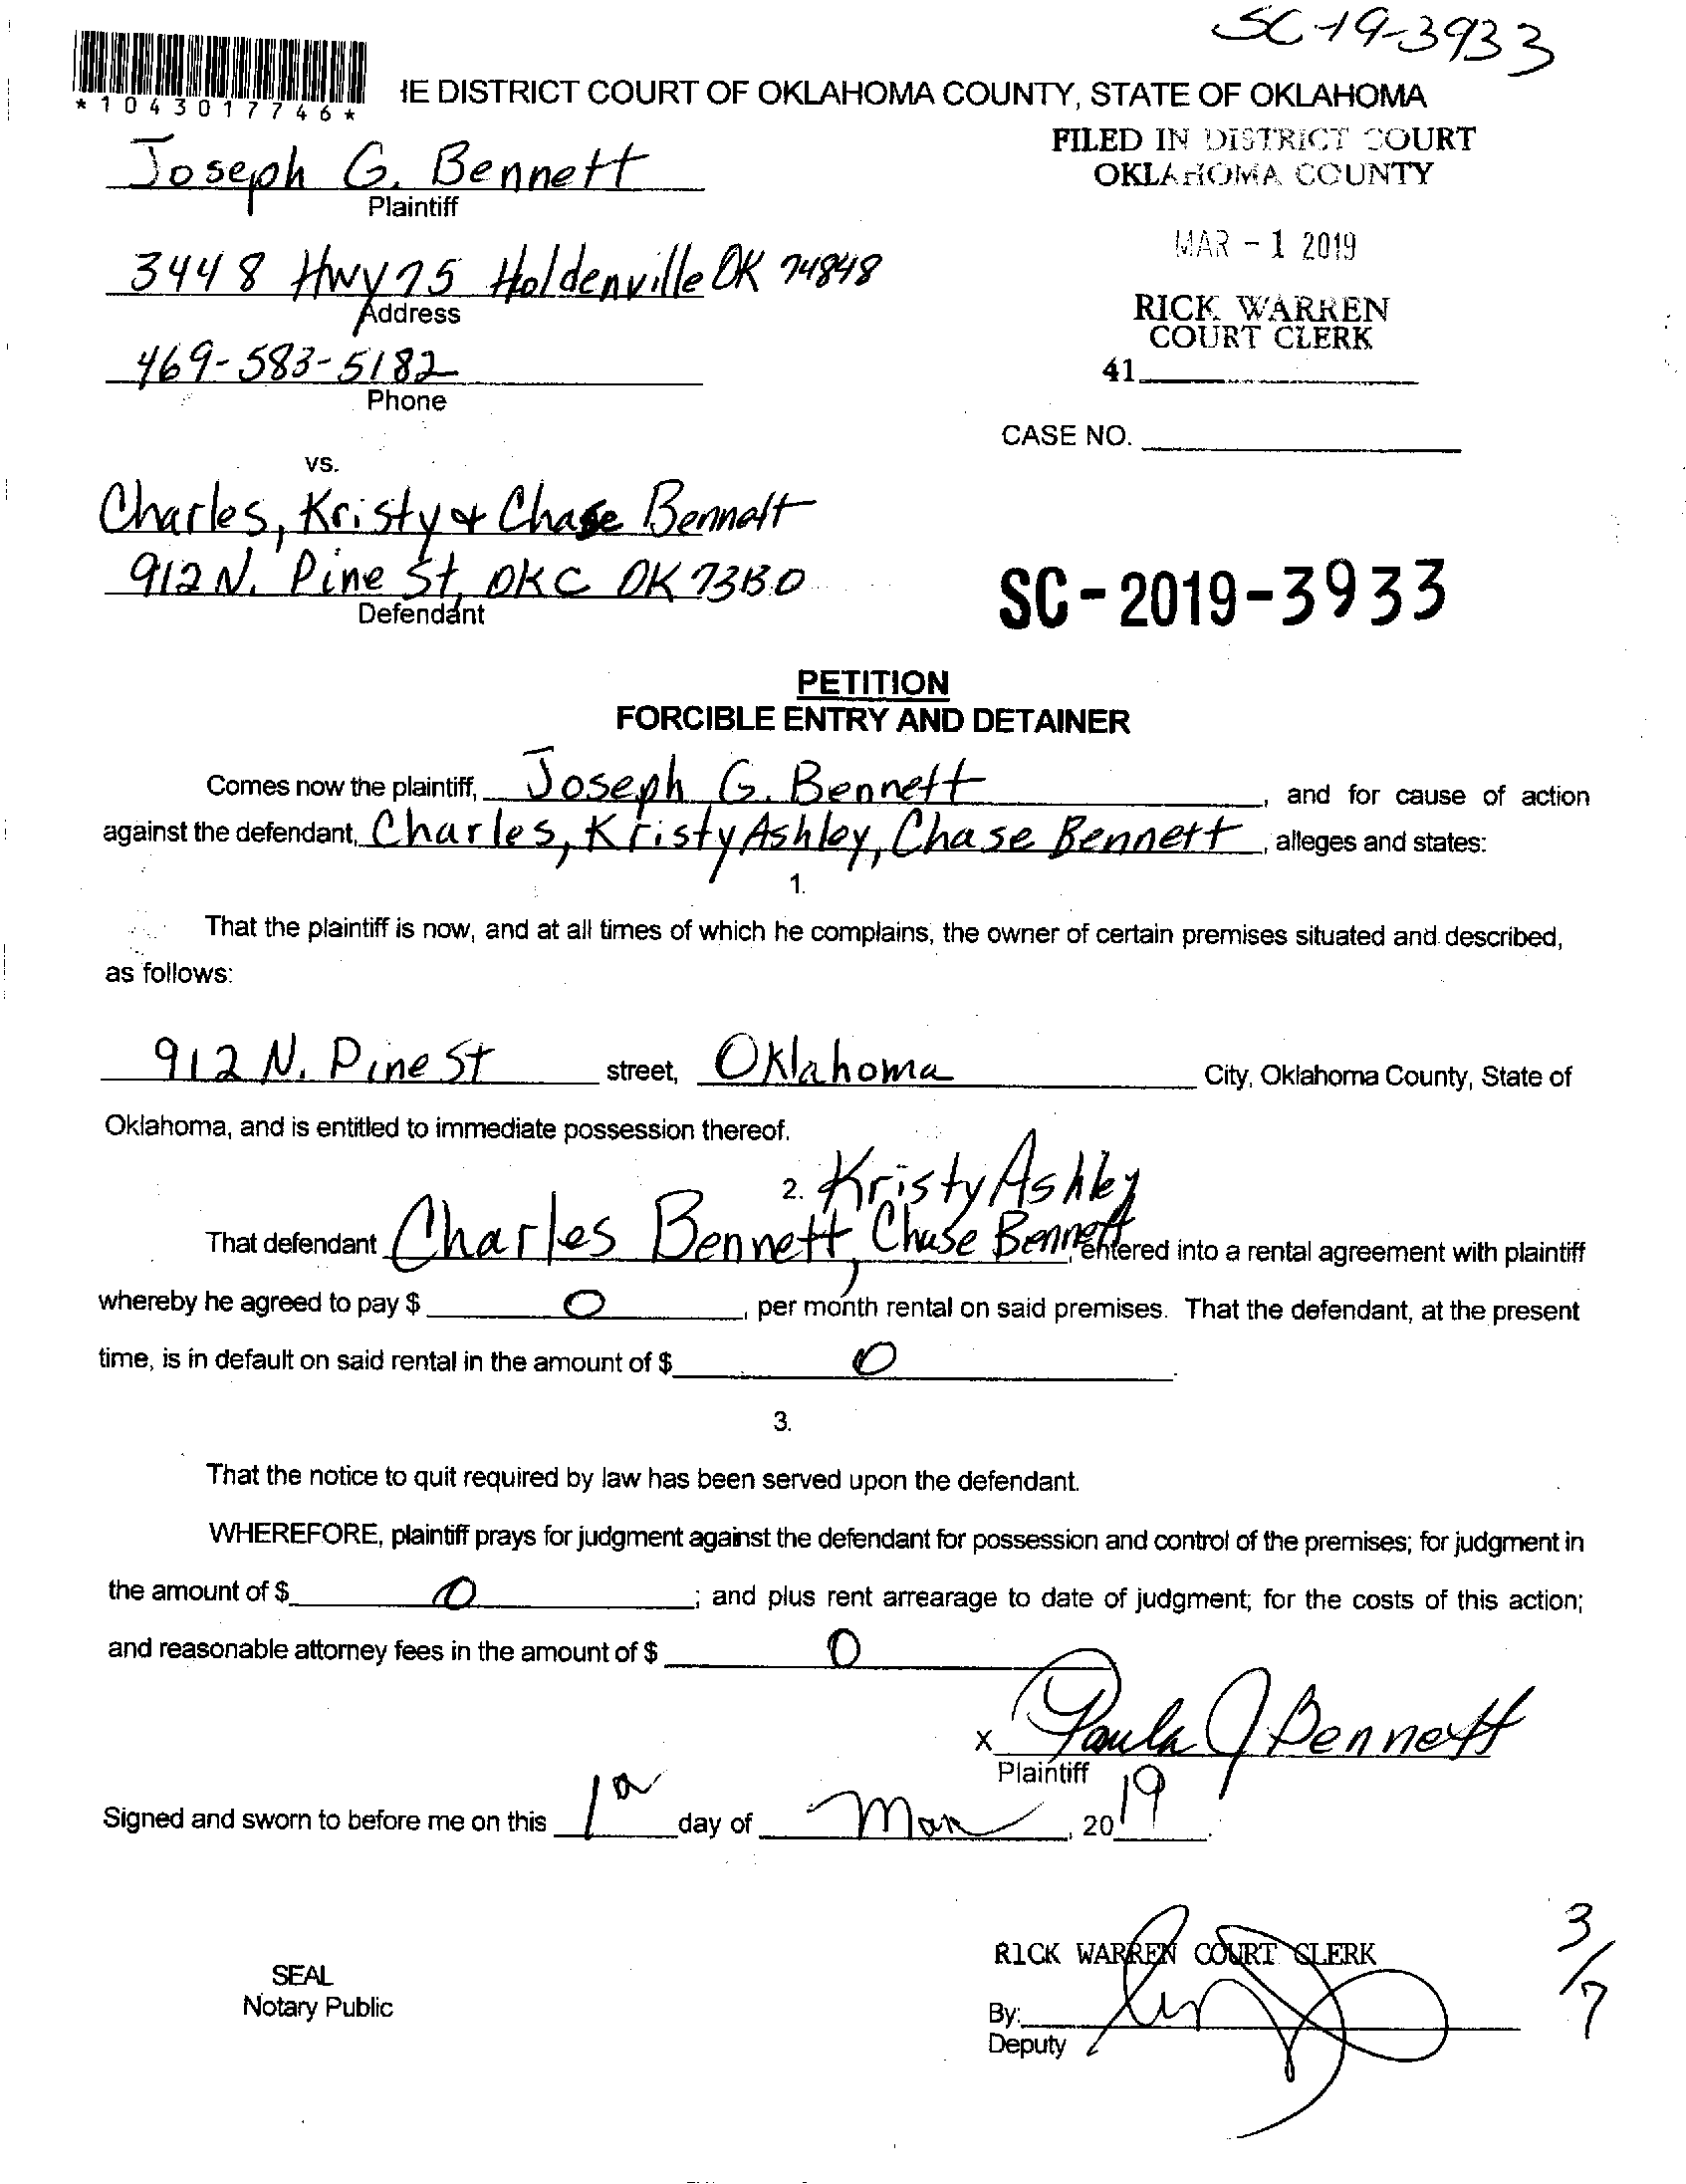 SC-19-3933
*1043017746*
IE DISTRICT COURT OF OKLAHOMA COUNTY, STATE OF OKLAHOMA
FILED IN DISTRICT COURT
OKLAHOMA COUNTY
Joseph G. Bennett
Plaintiff
MAR - 1 2019
3448 Hwy 75 Holdenville OK 74848
Address
RICK WARREN
COURT CLERK
469-583-5182
Phone
41
CASE NO.
vs.
Charles, Kristy & Chase Bennett
912 N. Pine St, OKC OK
Defendant
SC-2019-3933
PETITION
FORCIBLE ENTRY AND DETAINER
Comes now the plaintiff, Joseph G. Bennett, and for cause of action
against the defendant, Charles, Kristy Ashley, Chase Bennett, alleges and states:
1.
That the plaintiff is now, and at all times of which he complains, the owner of certain premises situated and described,
as follows:
912 N. Pine St street, Oklahoma City, Oklahoma County, State of
Oklahoma, and is entitled to immediate possession thereof.
2. Kristy Ashley
That defendant Charles Bennett, Chase Bennett, entered into a rental agreement with plaintiff
whereby he agreed to pay $ 0, per month rental on said premises. That the defendant, at the present
time, is in default on said rental in the amount of $ 0.
3.
That the notice to quit required by law has been served upon the defendant.
WHEREFORE, plaintiff prays for judgment against the defendant for possession and control of the premises; for judgment in
the amount of $ 0; and plus rent arrearage to date of judgment; for the costs of this action;
and reasonable attorney fees in the amount of $ 0
x Paula J Bennett
Plaintiff
Signed and sworn to before me on this 1 day of Mar, 2019.
3/7
RICK WARREN COURT CLERK
SEAL
Notary Public
By:
Deputy